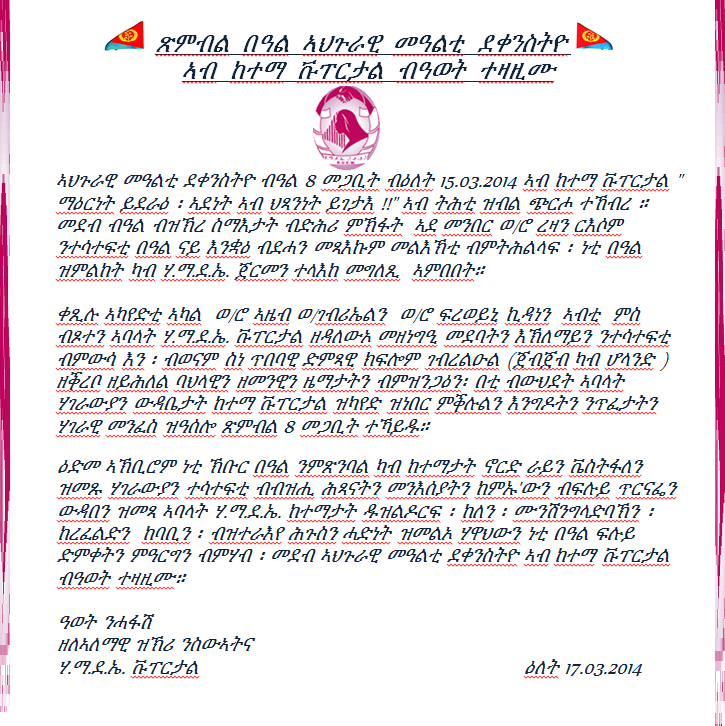 ጽምብል በዓል ኣህጉራዊ መዓልቲ ደቀንስትዮ
ኣብ ከተማ ቩፐርታል ብዓወት ተዛዚሙ
ኣህጉራዊ መዓልቲ ደቀንስትዮ ብዓል 8 መጋቢት ብዕለት 15.03.2014 ኣብ ከተማ ቩፐርታል "
ማዕርነት ይደራዕ ፡ ኣደነት ኣብ ህጻንነት ይገታእ !!" ኣብ ትሕቲ ዝብል ጭርሖ ተኸብረ ።
መደብ ብዓል ብዝኽረ ስማእታት ብድሕሪ ምኽፋት ኣደ መንበር ወ/ሮ ረዛን ርእሶም
ንተሳተፍቲ በዓል ናይ እንቋዕ ብደሓን መጻእኩም መልእኽቲ ብምትሕልላፍ ፡ ነቲ በዓል
ዝምልከት ካብ ሃ.ማ.ደ.ኤ. ጀርመን ተላእከ መግለጺ ኣምበበት።
ቀጺሉ ኣካየድቲ ኣካል ወ/ሮ ኣዜብ ወ/ገብሪኤልን ወ/ሮ ፍረወይኒ ኪዳነን ኣብቲ ምስ
ብጾተን ኣባላት ሃ.ማ.ደ.ኤ. ቩፐርታል ዘዳለውኣ መዘነግዒ መደባትን እኽለማይን ንተሳተፍቲ
ብምውሳ እን ፡ ብወናም ስነ ጥበባዊ ድምጻዊ ክፍሎም ገብረልዑል (ጀብጀብ ካብ ሆላንድ )
ዘቕረቦ ዘይሕለል ባህላዊን ዘመንዊን ዜማታትን ብምዝንጋዕን፡ በቲ ብውህደት ኣባላት
ሃገራውያን ውዳቤታት ከተማ ቩፐርታል ዝካየድ ዝነበር ምቕሉልን እንግዶትን ንጥፈታትን
ሃገራዊ መንፈስ ዝዓስሎ ጽምብል 8 መጋቢት ተኻይዱ።
ዕድመ ኣኽቢሮም ነቲ ኽቡር በዓል ንምጽንባል ካብ ከተማታት ኖርድ ራይን ቬስትፋለን
ዝመጹ ሃገራውያን ተሳተፍቲ ብብዝሒ ሕጻናትን መንእሰያትን ከምኡ'ውን ብፍሉይ ጥርናፌን
ውዳበን ዝመጻ ኣባላት ሃ.ማ.ደ.ኤ. ከተማታት ዱዝልዶርፍ ፡ ከለን ፡ ሙንሽንግላድባኽን ፡
ከረፈልድን ከባቢን ፡ ብዝተራእየ ሕጉስን ሓድነት ዝመልኦ ሃዋህውን ነቲ በዓል ፍሉይ
ድምቀትን ምዓርግን ብምሃብ ፡ መደብ ኣህጉራዊ መዓልቲ ደቀንስትዮ ኣብ ከተማ ቩፐርታል
ብዓወት ተዛዚሙ።
ዓወት ንሓፋሽ
ዘለኣለማዊ ዝኽሪ ንስውኣትና
ሃ.ማ.ደ.ኤ. ቩፐርታል ዕለት 17.03.2014